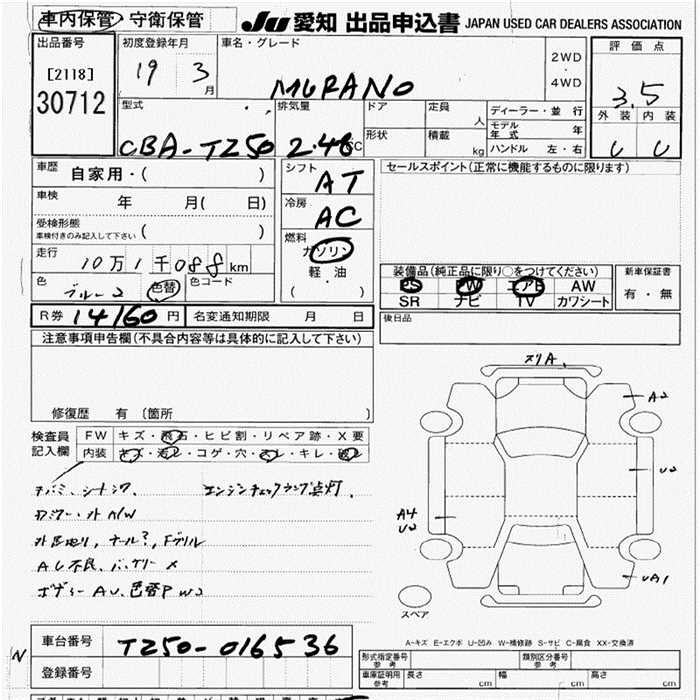 車内保管・守衛保管
JU 愛知 出品申込書 JAPAN USED CAR DEALERS ASSOCIATION
出品番号
[2118]
30712
初度登録年月
19 3月
車名・グレード
MURANO
2WD
・
4WD
評価点
3.5
外装 内装
型式
CBA-TZ50
排気量
2.48CC
ドア
形状
定員
人
積載
kg
ディーラー・並行
モデル年式 年
ハンドル 左・右
車歴
自家用・( )
車検
年 月( 日)
受検形態
車検付きのみ記入して下さい ( )
走行
10万1千088km
色
ブルー2 色替
色コード
シフト
AT
冷房
AC
燃料
ガソリン
軽・油
( ・ )
セールスポイント(正常に機能するものに限ります)
装備品(純正品に限り○をつけてください)
PS PW エアB AW
SR ナビ TV カワシート
新車保証書
有・無
R券 14160円
名変通知期限 月 日
後日品
注意事項申告欄(不具合内容等は具体的に記入して下さい)
修復歴 有 〔箇所 〕
検査員記入欄
FW キズ・飛石・ヒビ割・リペア跡・X要
内装 キズ・汚レ・コゲ・穴・スレ・キレ・破レ
エンジンチェックランプ点灯.
外AW
AC不良、バッテリーX
ボデーAU、色替PW2
スリA.
A2
U2
A4
U2
UA1
スペア
A-キズ E-エクボ U-凹み W-補修跡 S-サビ C-腐食 XX-交換済
N
車台番号 TZ50-016536
登録番号
形式指定番号
参考
類別区分番号
参考
車庫証明用
参考
長さ cm 幅 cm 高さ cm